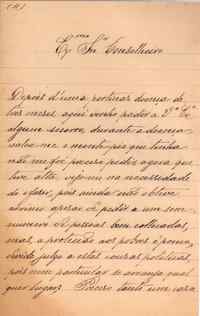 Exmo Snr Conselheiro
Depois d'uma continua doença de
tres meses aqui venho pedir a V.ª Ex.ª
algum socorro, durante a doença
valeu-me o monte-pio que tinha
não me foi preciso pedir agora que
tive alta vejo-me na necessidade
de o fazer, pois ainda não obtive
serviço apezar de pedir a um sem
numero de pessoas bem collocadas,
mas a protecção aos pobres é pouca,
devido julgo a estas cousas politicas,
pois nem particular se arranja qual
quer lugar. Posso tanto um caso